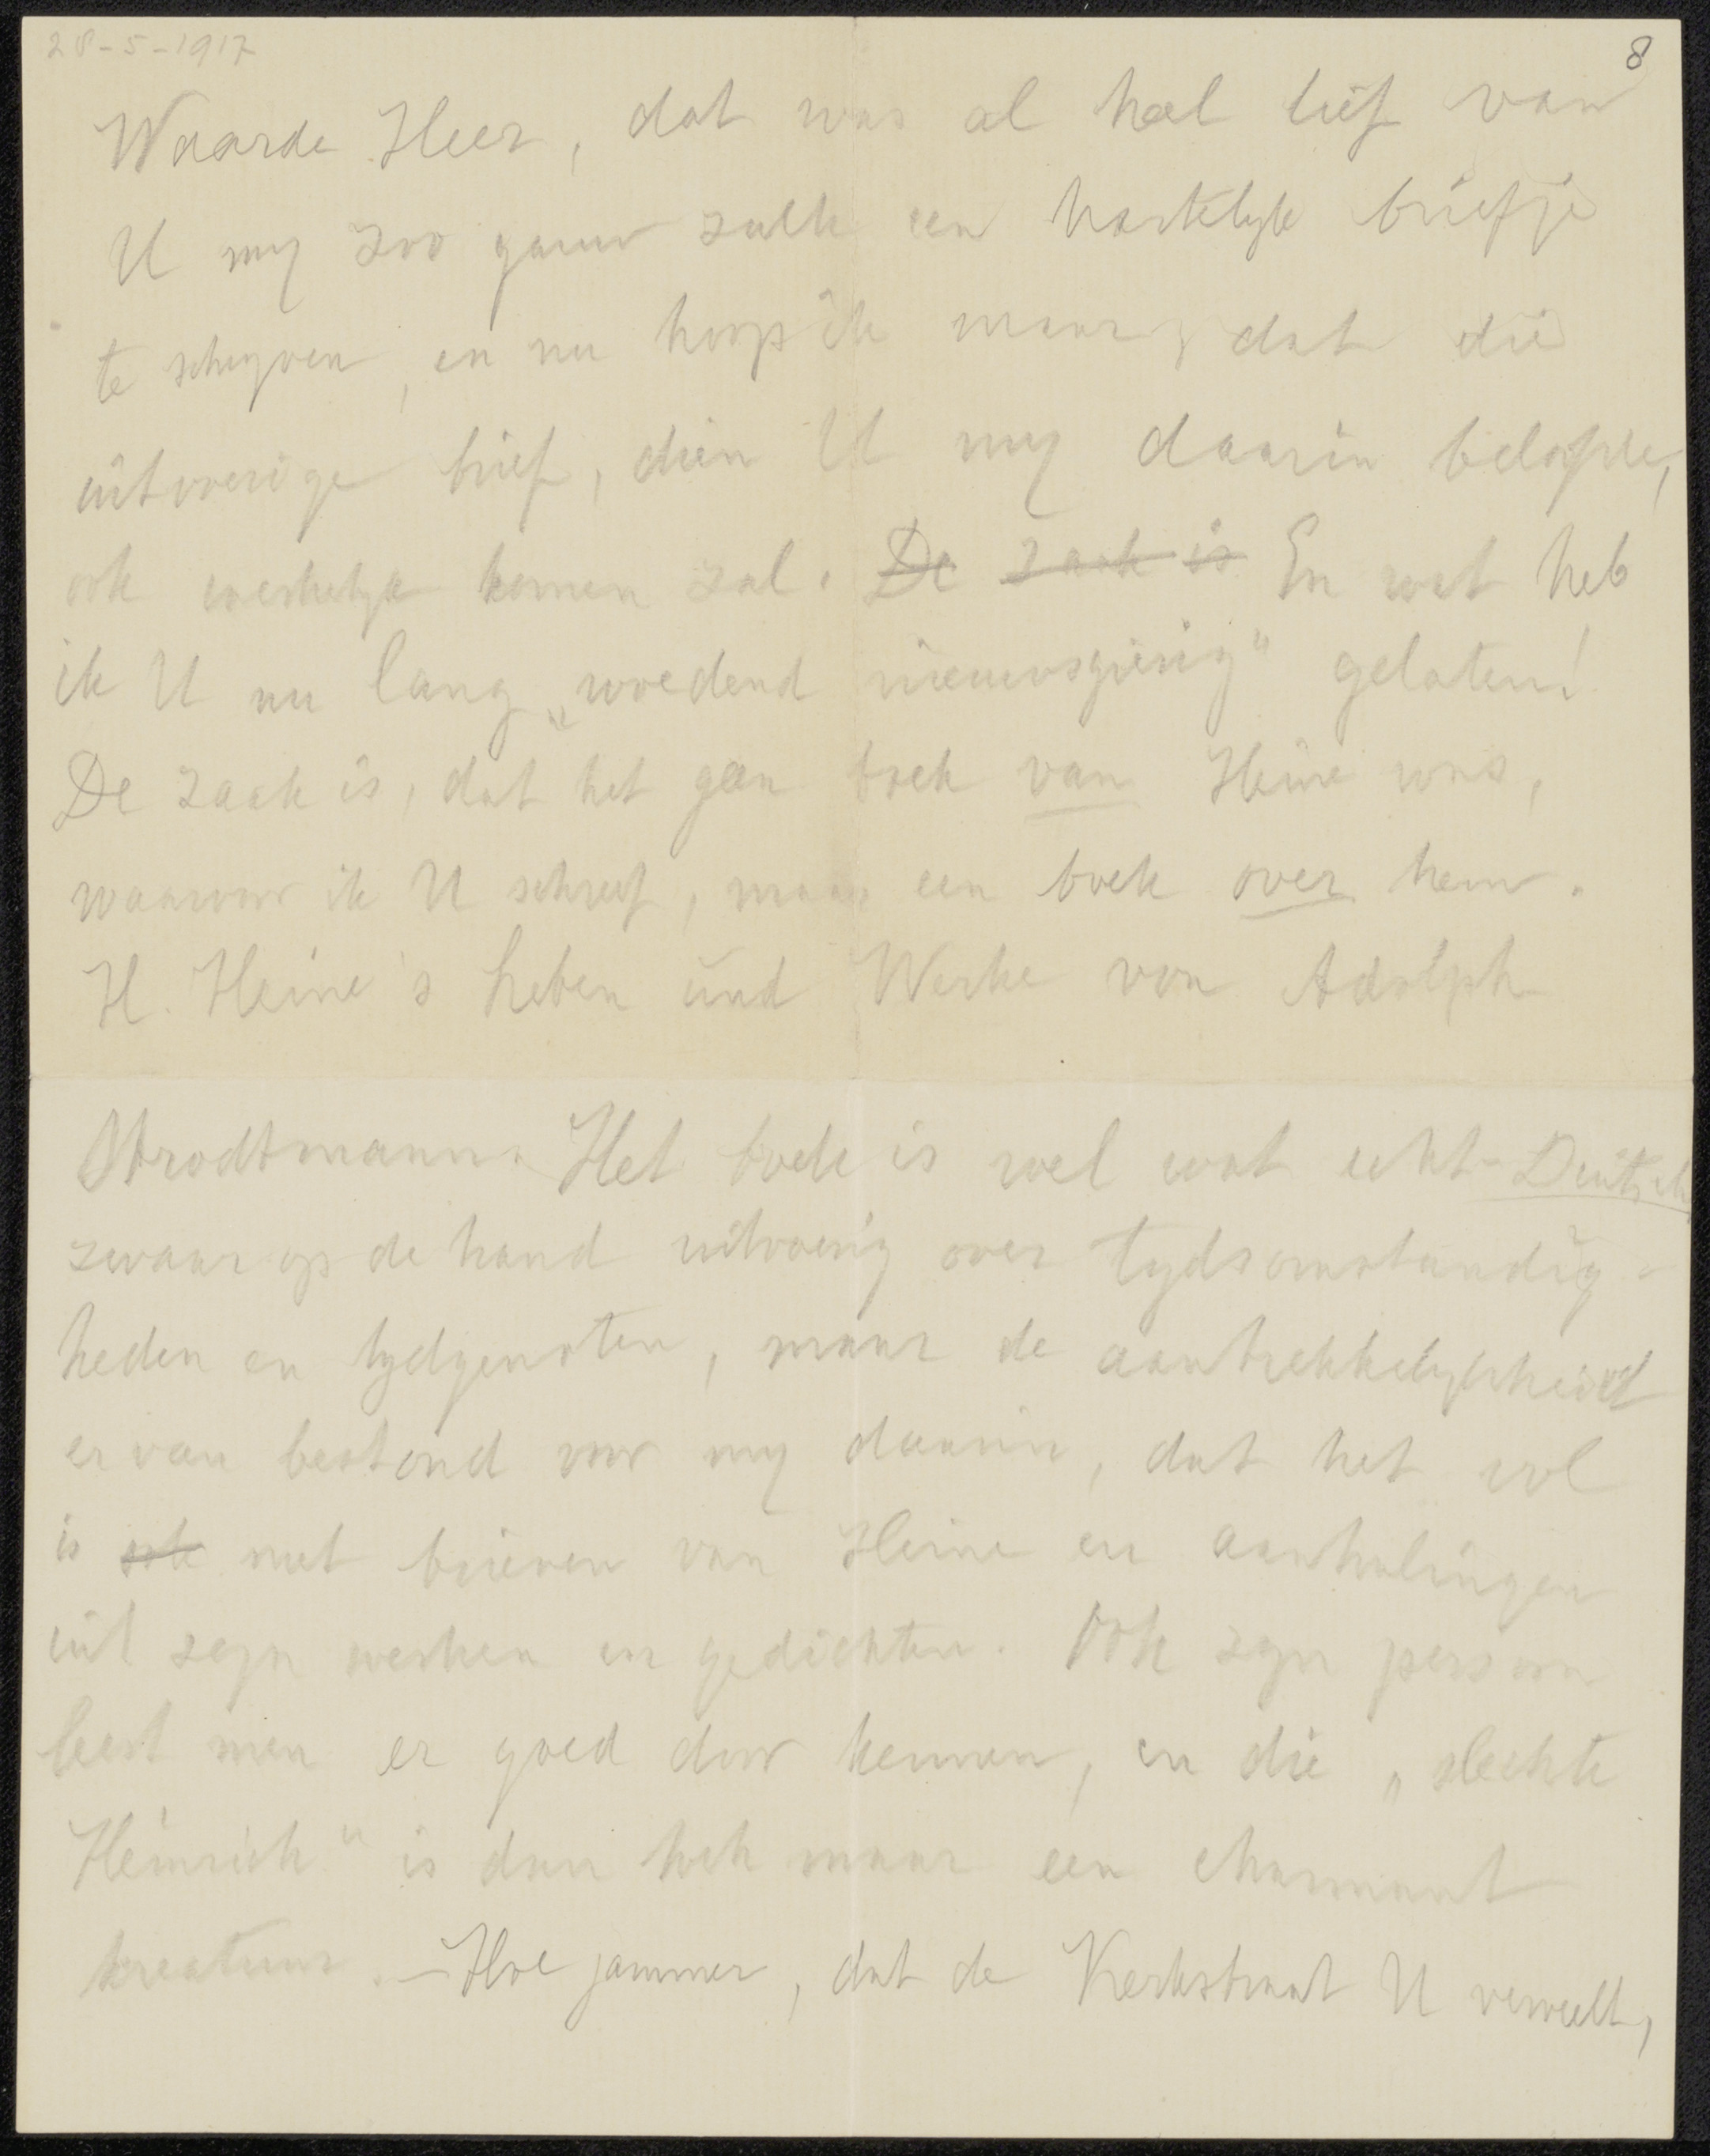 28-5-1917
8
Waarde Heer, dat was al heel lief van
U my zoo gauw zulk een hartelyk briefje
te schryven, en nu hoop ik maar, dat die
uitvoerige brief, dien U my daarin beloofde,
ook werkelyk komen zal. De zaak is En wat heb
ik U nu lang „woedend nieuwsgierig" gelaten!
De zaak is, dat het geen boek van Heine was,
waarover ik U schreef, maar een boek over hem.
H. Heine's Leben und Werke von Adolph
Strodtmann. Het boek is wel wat echt-Deutsch
zwaar op de hand uitvoerig over tydsomstandig-
heden en tydgenoten, maar de aantrekkelykheid
ervan bestond voor my daarin, dat het vol
is ook met brieven van Heine en aanhalingen
uit zyn werken en gedichten. Ook zyn persoon
leert men er goed door kennen, en die „slechte
Heinrich" is dan toch maar een charmant
kreatuur. — Hoe jammer, dat de Kerkstraat U verveelt,